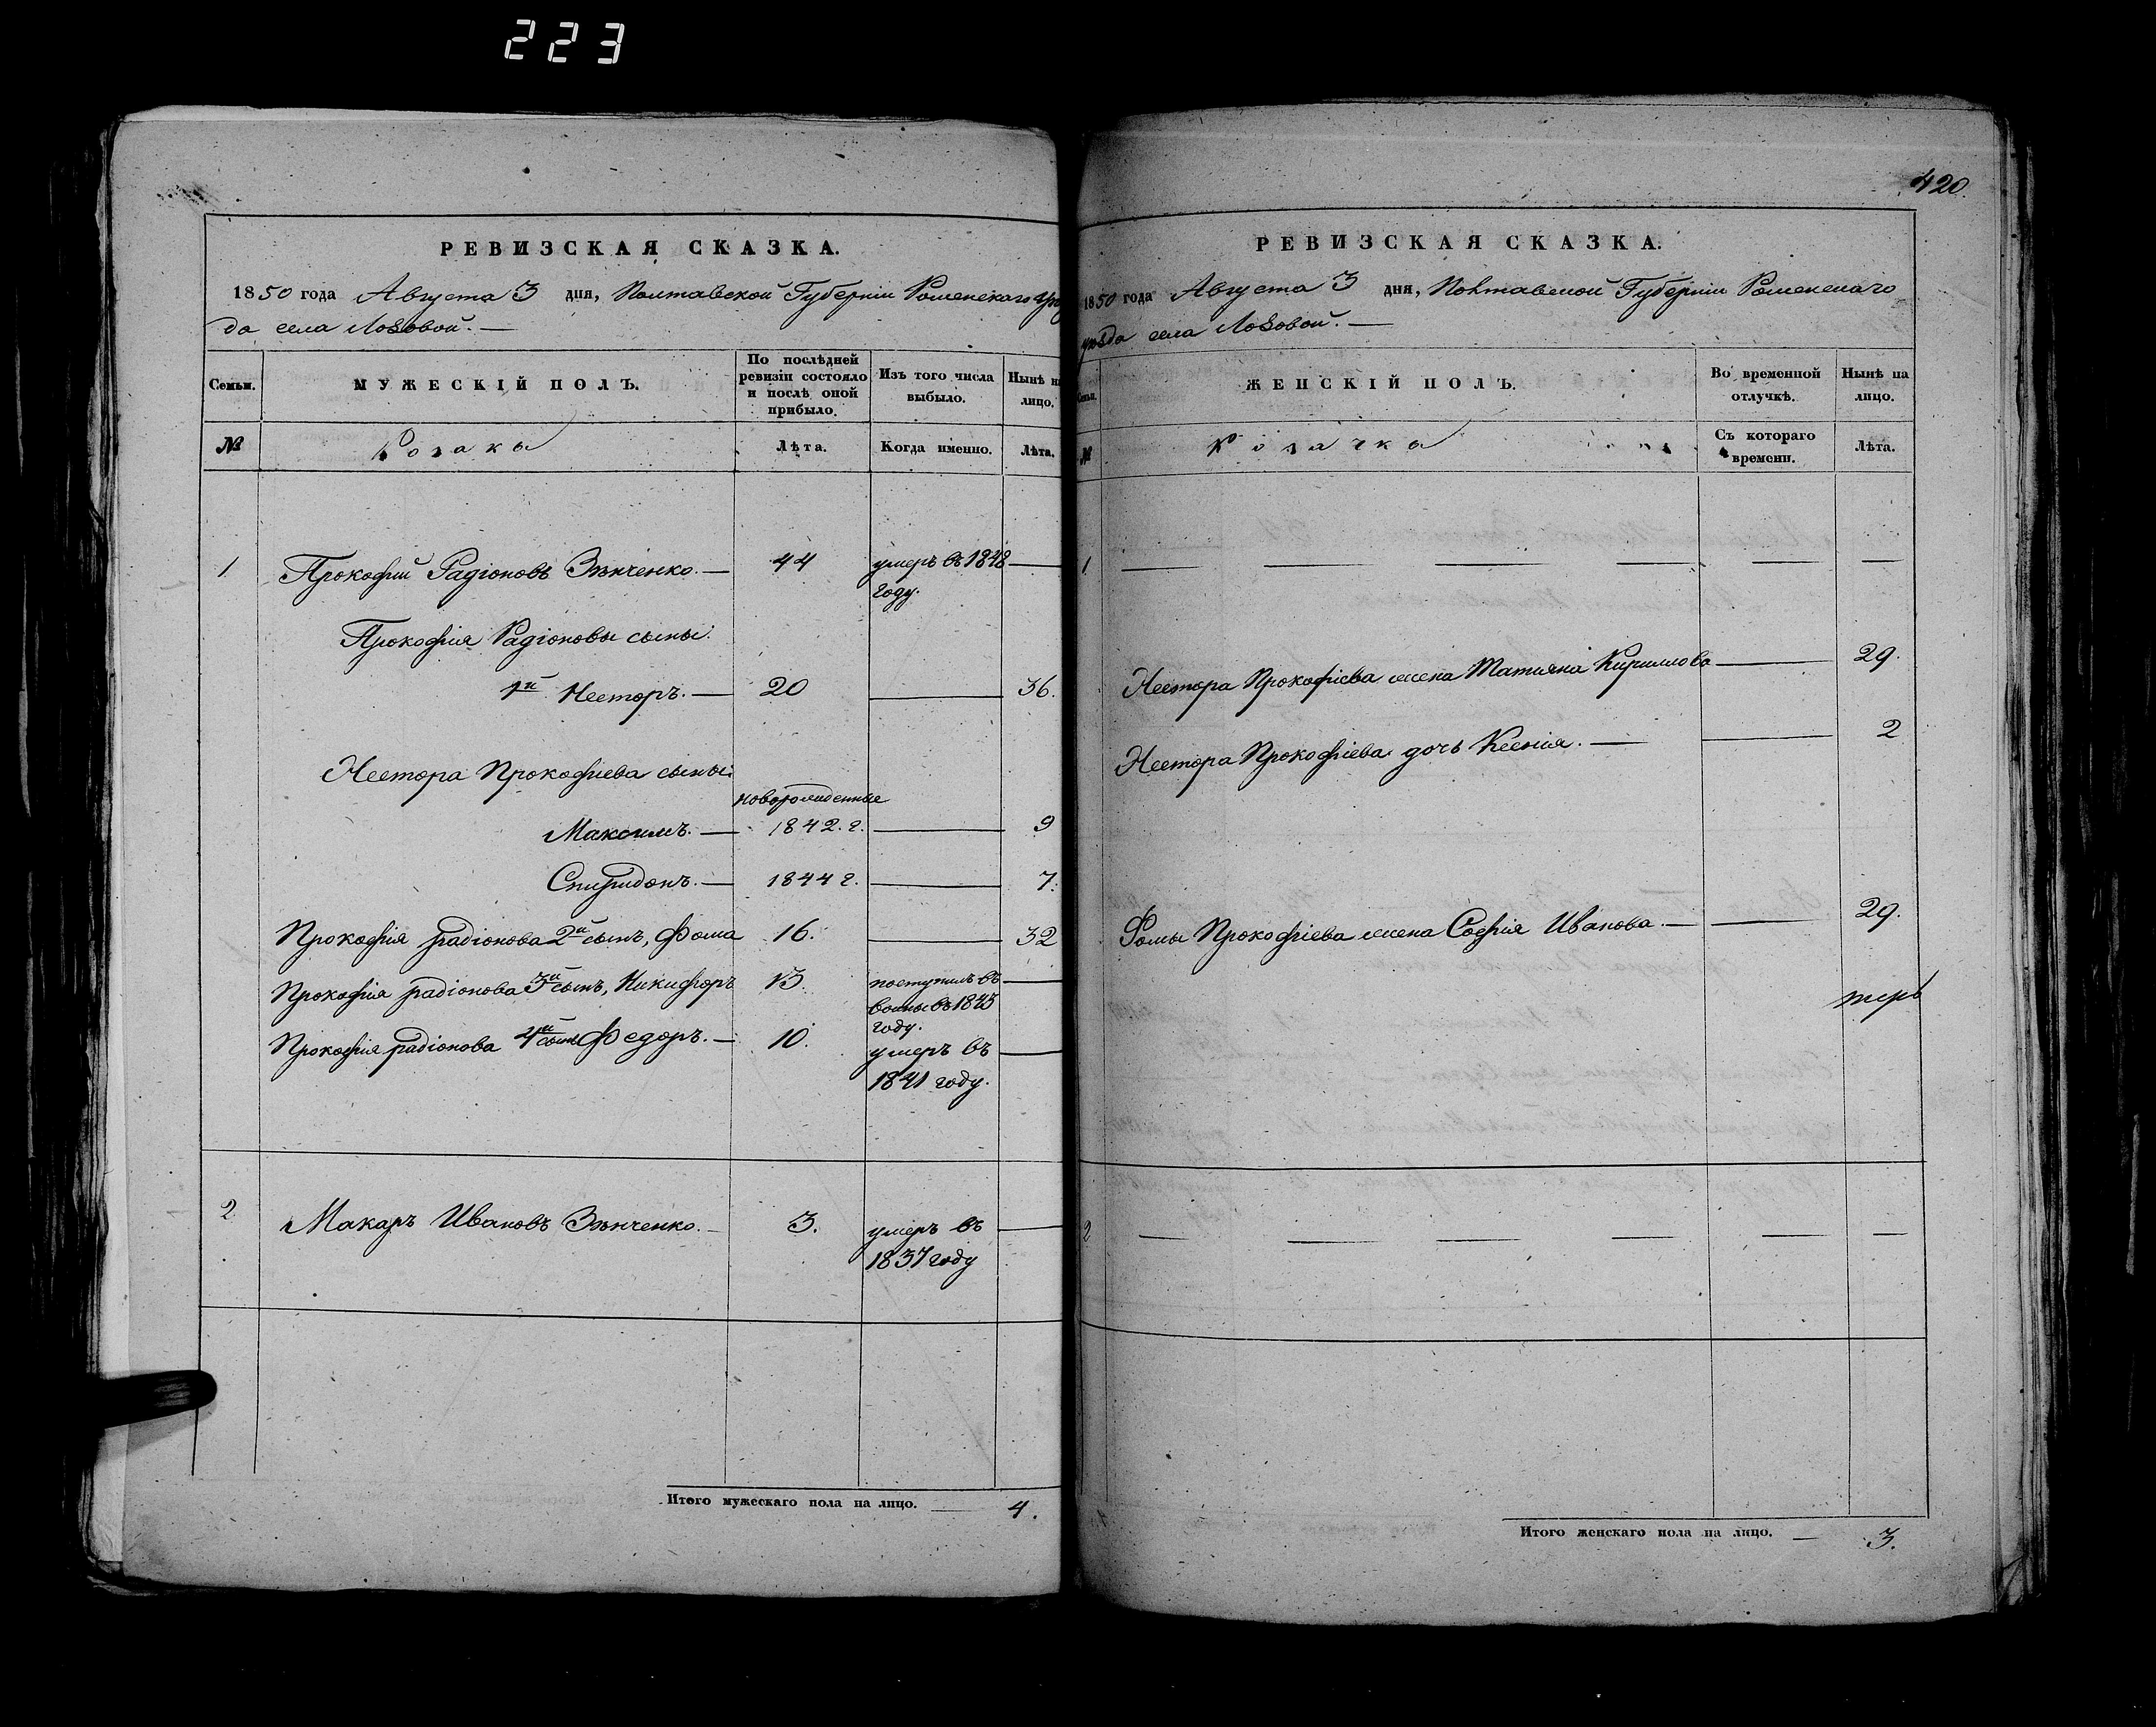 223
РЕВИЗСКАЯ СКАЗКА.
1850 года Августа 3 дня, Полтавской Губерніи Роменскаго уѣз
да села Лозовой. —
Семьи.
МУЖЕСКІЙ ПОЛЪ.
По послѣдней
ревизіи состояло
и послѣ оной
прибыло.
Изъ того числа
выбыло.
Нынѣ на
лицо.
№
Козака
Лѣта.
Когда именно.
Лѣта.
1. Прокофий Радіоновъ Зѣнченко. — 44 умеръ въ 1848 —
году.
Прокофія Радіонова сыны:
1й Несторъ. — 20 — 36.
Нестора Прокофиева сыны:
новорожденные
Максимъ. — 1842. г. — 9
Спиридонъ. — 1844 г. — 7.
Прокофія радіонова 2й сынъ, Фома 16. — 32
Прокофія радіонова 3й сынъ, Никифоръ 13. поступилъ въ —
году.
Прокофія радіонова 4й сынъ Федоръ. — 10. умеръ въ —
1841 году.
2 Макаръ Ивановъ Зѣнченко. — 3. умеръ въ —
1837 году
Итого мужескаго пола на лицо. — 4.
420.
РЕВИЗСКАЯ СКАЗКА.
1850 года Августа 3 дня, Полтавской Губерніи Роменскаго
уѣзда села Лозовой. —
Семьи.
ЖЕНСКІЙ ПОЛЪ.
Во временной
отлучкѣ.
Нынѣ на
лицо.
№
Козачка
Съ котораго
времени.
Лѣта.
1. — — — — — —
Нестора Прокофіева жена Татияна Кирилова — 29.
Нестора Прокофіева дочь Ксенія. — — 2
Фомы Прокофіева жена Софія Иванова. — — 29.
2 — — — — — —
Итого женскаго пола на лицо. — 3.